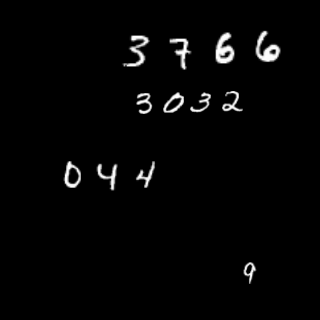 3766
3032
044
9